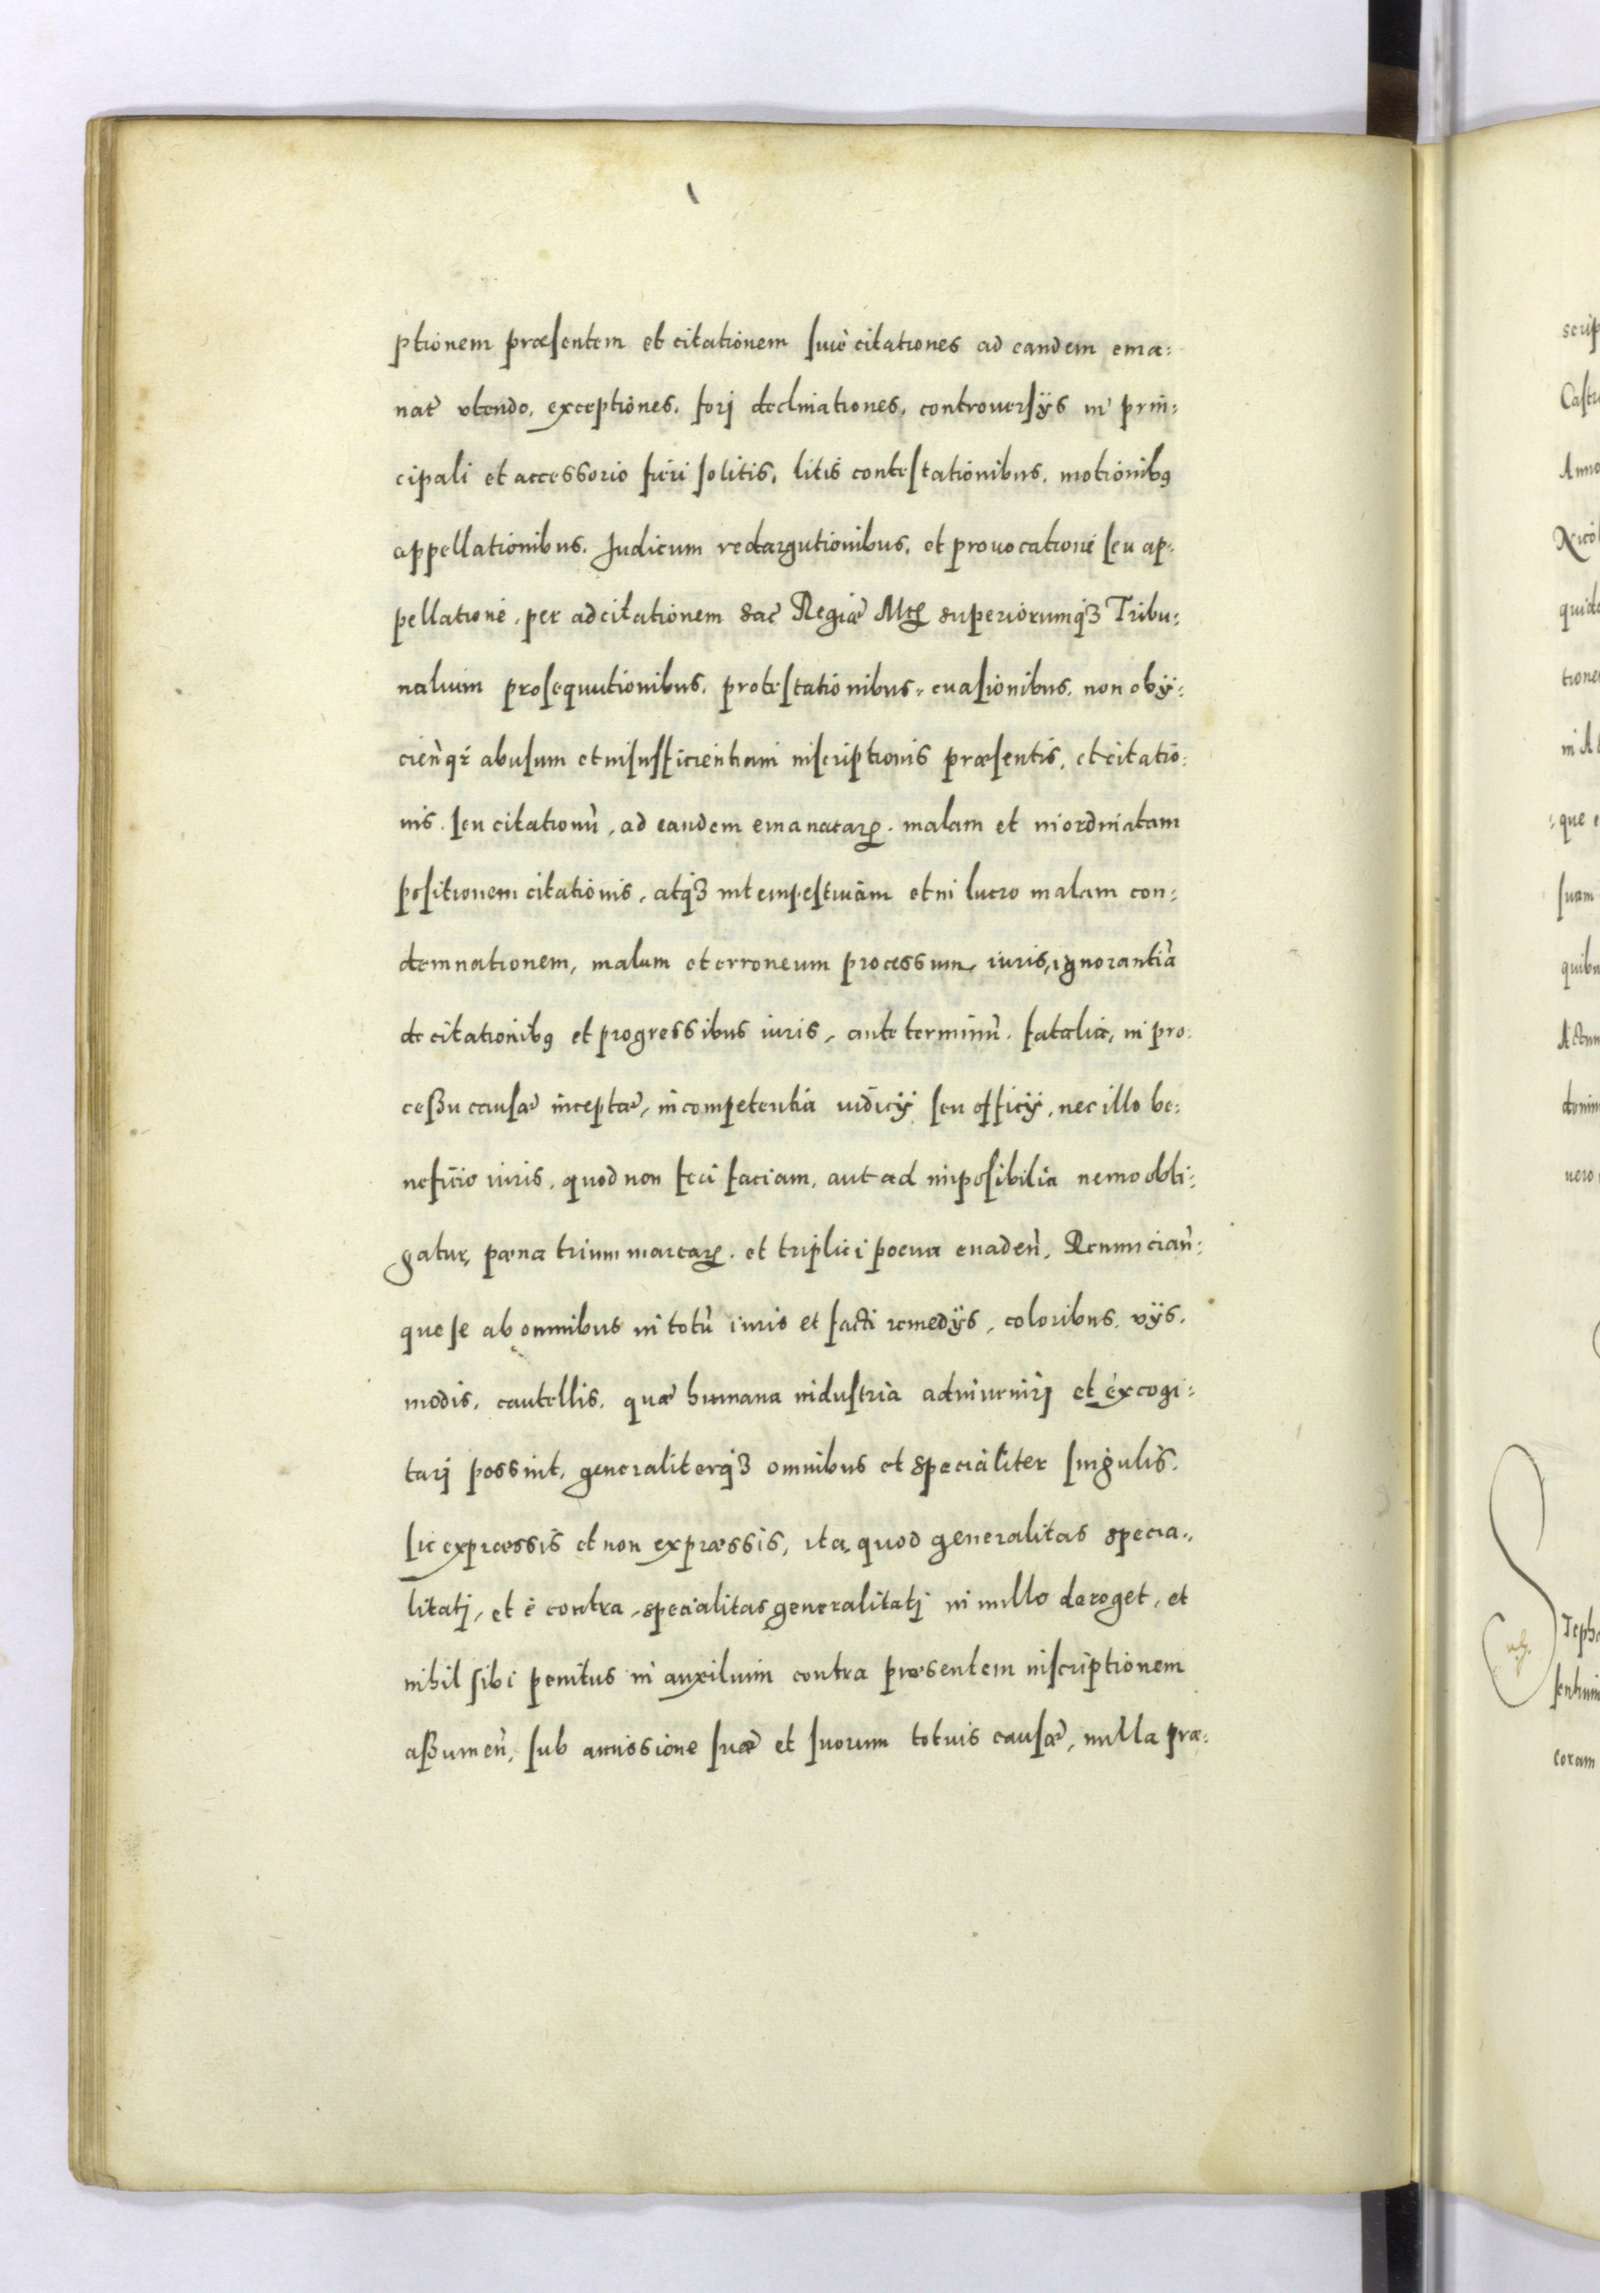 ptionem præsentem et citationem siue citationes ad eandem ema:
nat utendo, exceptiones, forj declinationes, controuersijs in prin:
cipali et accessorio fieri solitis, litis contestationibus, motionibq
appellationibus, Judicum redargutionibus, et prouocatione seu ap:
pellatione, per adcitationem sac Regiæ superiorumq3 Tribu:
nalium prosequutionibus, protestationibus, euasionibus, non obij:
cienq abusum et insufficientiam inscriptionis præsentis, et citatio:
nis, seu citationu, ad eandem emanatar, malam et inordinatam
positionem citationis, atq3 intempestiuam et in lucro malam con:
demnationem, malum et erroneum processum, iuris, ignorantia
de citationibq et progressibus iuris, ante terminu, fatalia, in pro:
cessu causæ inceptæ, incompetentia iudicij seu officij, nec illo be:
neficio iuris, quod non feci faciam, aut ad imposibilia nemo obli:
gatur, pæna trium marcar, et triplici poena euaden, Renuncian:
que se ab omnibus in totu iuris et facti remedijs, coloribus, vijs,
modis, cautellis, quæ humana industria adinuenirj et excogi:
tarj possint, generaliterq3 omnibus et specialiter singulis,
sic expræssis et non expræssis, ita, quod generalitas specia:
litatj, et è contra, specialitas generalitatj in nullo deroget, et
nihil sibi penitus in auxilium contra præsentem inscriptionem
assumen, sub amissione suæ et suorum totius causæ, nulla præ:
scrip
Castr
Anno
Nicol
quid
tione
in A
que
suam
quibu
Actum
uero
Steph
coram